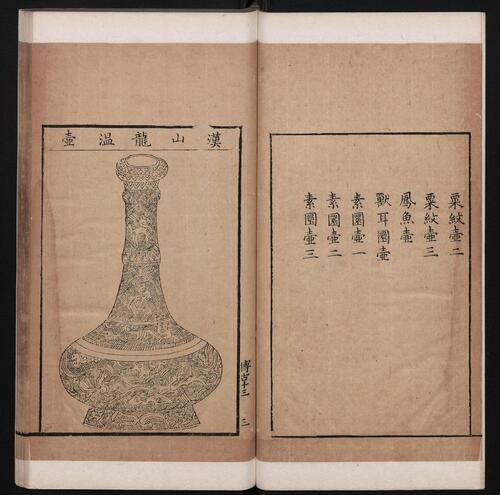 粟紋壺二
粟紋壺三
鳳魚壺
獸耳圜壺
素圜壺一
素圜壺二
素圜壺三
漢山龍温壺
博古十三
三